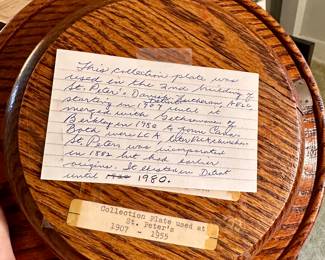 This collection plate was
used in the 2nd building of
St. Peter's Danish Lutheran
starting in 1907 until it
merged with Gethsemane of
Berkley in 1956 to form
Both were
St. Peters was incorporated
in 1882 but had earlier
origins. It existed in Detroit
until 1980.
Collection Plate used at
St. Peter's
1907 - 1955